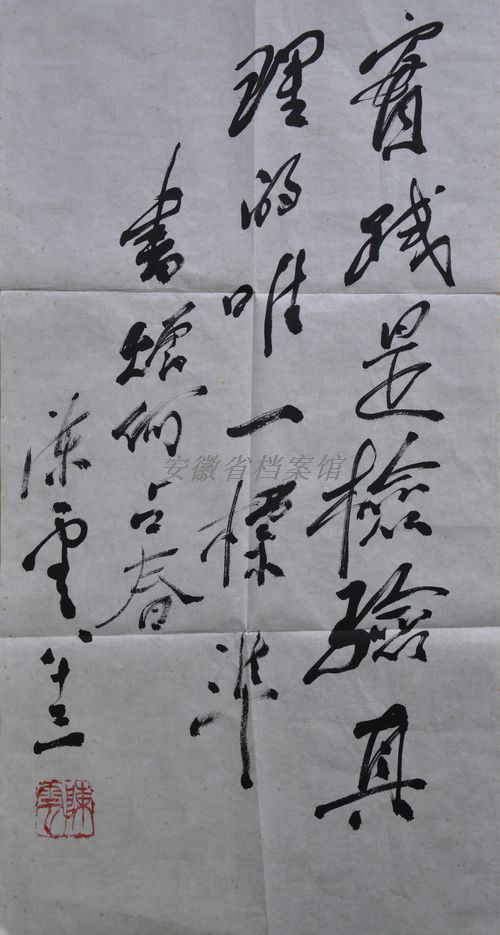 實踐是檢驗真
理的唯一標準
書贈何占春
陈雲八十三
陳雲
安徽省档案馆